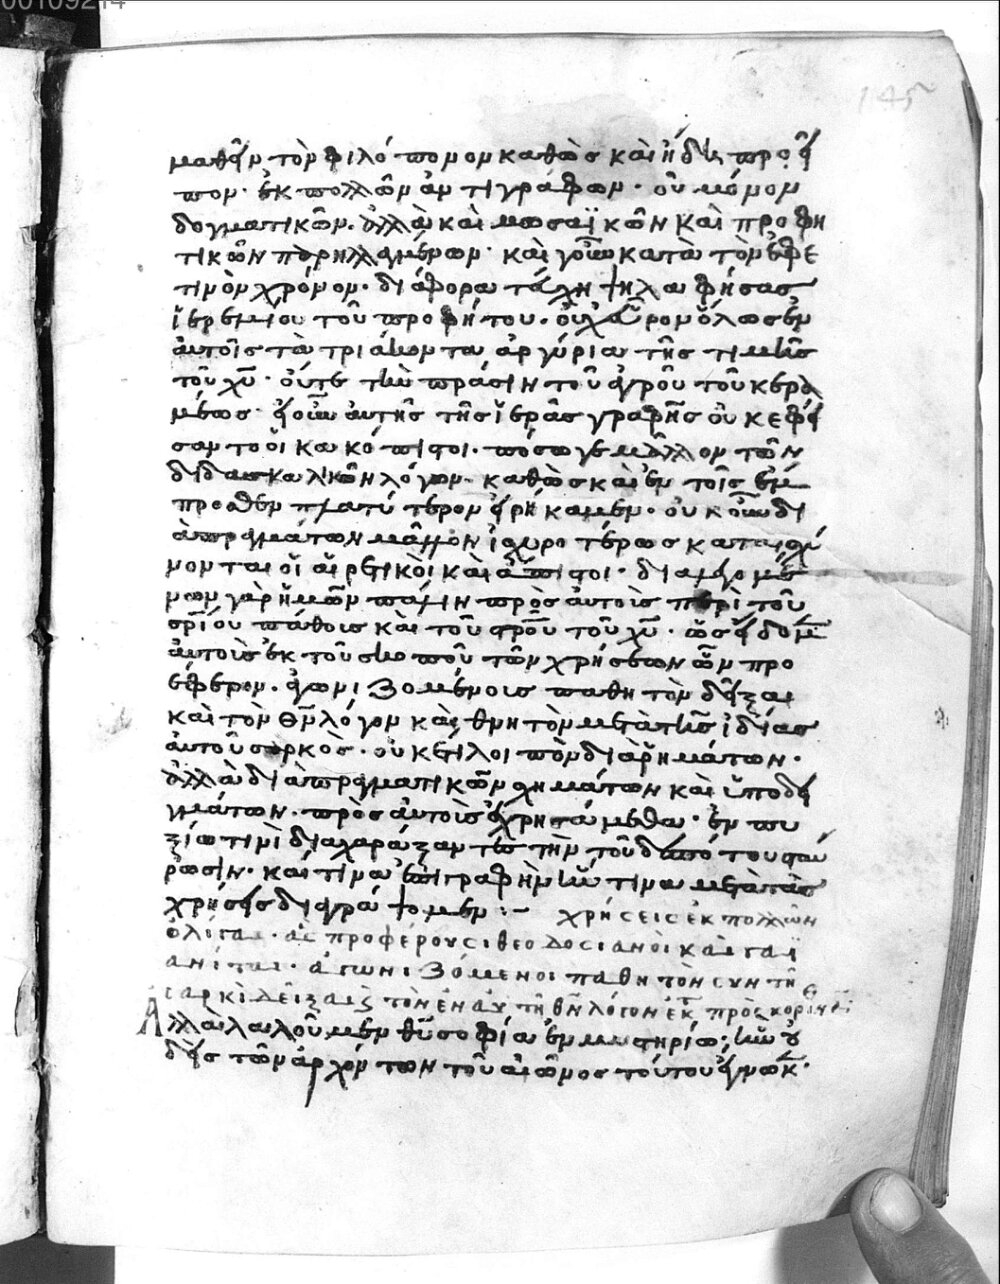 00109214
145
μαθεῖν τὸν φιλόπονον καθὼς καὶ ἤδη προεῖ
πον· ἐκ πολλῶν ἀντιγράφων· οὐ μόνον
δογματικῶν. ἀλλὰ καὶ μωσαϊκῶν καὶ προφη
τικῶν παρηλλαγμένων· καὶ γοῦν κατὰ τὸν ἐφε
τινὸν χρόνον· διάφορα τεύχη ψηλαφήσας
ἱερεμίου τοῦ προφήτου· οὐχ εὗρον ὅλως ἐν
αὐτοῖς τὰ τριάκοντα ἀργύρια τῆς τιμῆς
τοῦ χυ· οὔτε τὴν πρᾶσιν τοῦ ἀγροῦ τοῦ κερα
μέως· εἰ οὖν αὐτῆς τῆς ἱερᾶς γραφῆς οὐκ ἐφεί
σαντο οἱ κακόπιστοι· πόσω γε μᾶλλον τῶν
διδασκαλικῶν λόγων· καθὼς καὶ ἐν τοῖς ἔμ
προσθεν πλατύτερον εἰρήκαμεν· οὐκοῦν δι
ὰ πραγμάτων μᾶλλον ἰσχυροτέρως καταισχύ
νονται οἱ αἱρετικοὶ καὶ ἄπιστοι· διαλεγομέ
νων γὰρ ἡμῶν πάλιν πρὸς αὐτοὺς περὶ τοῦ
σρίου πάθους καὶ τοῦ σροῦ τοῦ χυ· ὡς εἴδομεν
αὐτοὺς ἐκ τοῦ σκοποῦ τῶν χρήσεων ὧν προ
έφερον· ἀγωνιζομένους παθητὸν δεῖξαι
καὶ τὸν θν λόγον καὶ θνητὸν μετὰ τῆς ἰδίας
αὐτοῦ σαρκὸς· οὐκέτι λοιπὸν διὰ ῥημάτων·
ἀλλὰ διὰ πραγματικῶν σχημάτων καὶ ὑποδει
γμάτων· πρὸς αὐτοὺς ἐχρησάμεθα· ἐν πυ
ξίω τινὶ διαχαράξαντες τὴν τοῦ δεσπότου σταύ
ρωσιν· καί τινα ἐπιγραφὴν ἥν τινα μετὰ τὰς
χρήσεις διαγράψομεν :– χρήσεις ἐκ πολλῶν
ὀλίγαι· ἃς προφέρουσι θεοδοσιανοὶ καὶ γαϊ
ανῖται· ἀγωνιζόμενοι παθητὸν σὺν τῆ
σαρκὶ δεῖξαι καὶ τὸν ἐν αυτῆ θν λόγον ἐκ τῆς πρὸς κορινθ
Ἀλλὰ λαλοῦμεν θυ σοφίαν ἐν μυστηρίω, ἣν οὐ
δεὶς τῶν ἀρχόντων τοῦ αἰῶνος τούτου ἔγνωκεν·